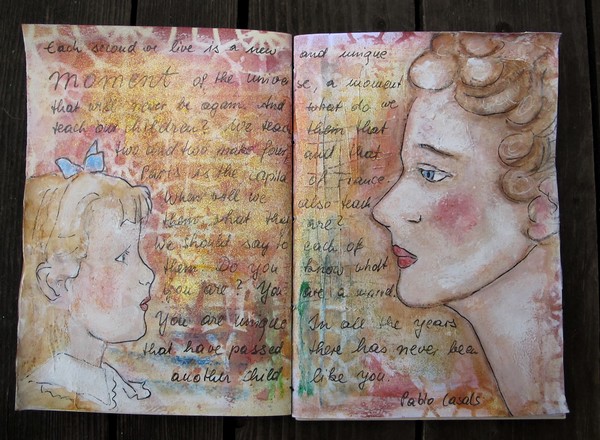 Each second we live is a new and unique
moment of the universe, a moment
that will never be again. And what do we
teach our children? We teach them that
two and two make four, and that
Paris is the capital of France.
When will we also teach
them what they are?
We should say to each of
them: Do you know what
you are? You are a
You are unique In all the years
that have passed there has never been
another child like you.
Pablo Casals